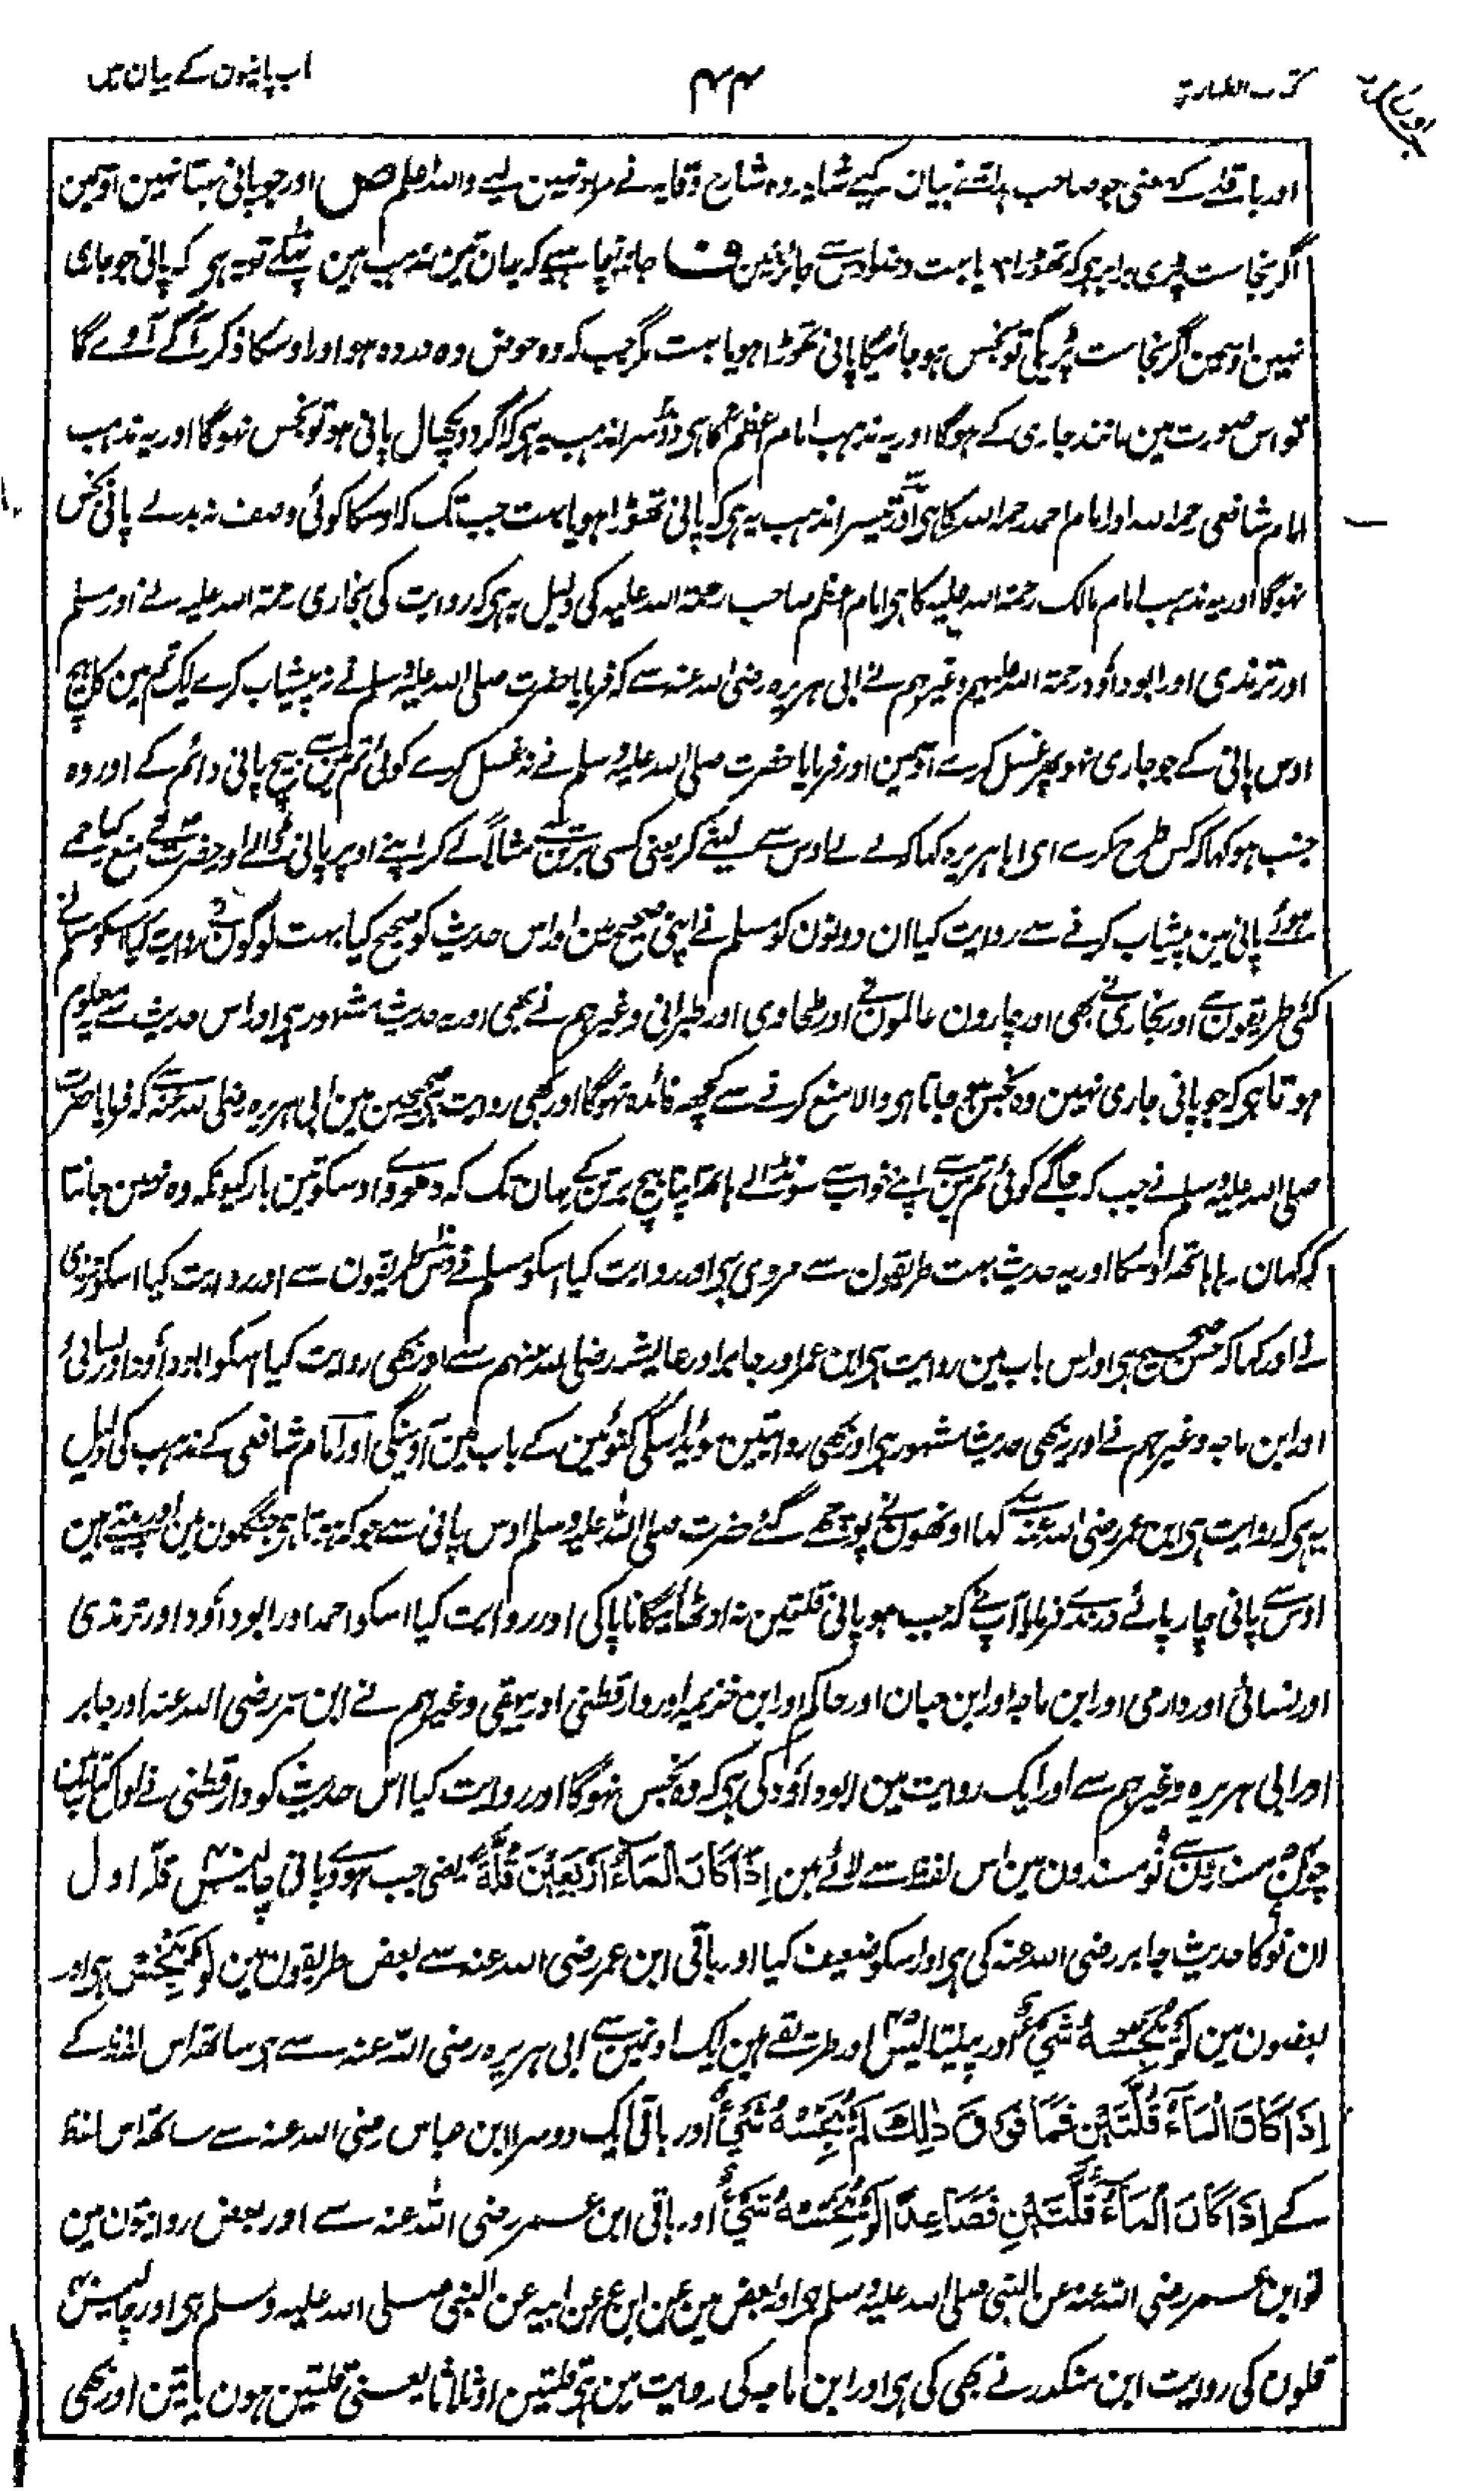 کتاب الطہارۃ
۴۴
اب پانیون کے بیان میں
اور باقلے کے معنی جو صاحب ہدایتے نے بیان کیے شاید وہ شارح وقایہ نے مراد نہین لیے واللہ اعلم ص اور جو پانی بہتا نہین اوسمین
اگر نجاست پڑی برابر ہی کہ تھوڑا ہو یا بہت وضو اوس سے جائز نہین ف جاننا چاہیے کہ یہان تین مذہب ہین پہلے تو یہ ہی کہ پانی جو جاری
نہین اوسمین اگر نجاست پڑیگی تو نجس ہو جائیگا پانی تھوڑا ہو یا بہت مگر جب کہ وہ حوض دہ در دہ ہو اور اوسکا ذکر آگے آوے گا
تو اس صورت مین مانند جاری کے ہوگا اور یہ مذہب امام اعظم کا ہی دوسرا مذہب یہ ہی کہ اگر دو پکھال پانی ہو تو نجس نہوگا اور یہ مذہب
امام شافعی رحمہ اللہ اور امام احمد رحمہ اللہ کا ہی اور تیسرا مذہب یہ ہی کہ پانی تھوڑا ہو یا بہت جب تک کہ اوسکا کوئی وصف نہ بدلے پانی نجس
نہوگا اور یہ مذہب امام مالک رحمۃ اللہ علیہ کا ہی امام اعظم صاحب رحمۃ اللہ علیہ کی دلیل یہ ہی کہ روایت کی بخاری رحمۃ اللہ علیہ نے اور مسلم
اور ترمذی اور ابو داؤد رحمۃ اللہ علیہم وغیرہم نے ابی ہریرہ رضی اللہ عنہ سے کہ فرمایا حضرت صلی اللہ علیہ وسلم نے نہ پیشاب کرے ایک تم مین کا بیچ
اوس پانی کے جو جاری نہو پھر غسل کرے اوسمین اور فرمایا حضرت صلی اللہ علیہ وسلم نے نہ غسل کرے کوئی تم مین سے بیچ پانی دائم کے اور وہ
جنب ہو کہا کہ کس طرح کرے ای ابا ہریرہ کہا کہ لے لے اوس سے لینے کر یعنی کسی برتن سے مثلاً لے کر اپنے اوپر پانی ڈالے اور حضرت نے منع کیا جمے
ہوئے پانی مین پیشاب کرنے سے روایت کیا ان دونون کو مسلم نے اپنی صحیح مین اور اس حدیث کو صحیح کیا بہت لوگون نے روایت کیا اسکو مسلم نے
کئی طریقون سے اور بخاری نے بھی اور چارون عالمون نے اور طحاوی اور طبرانی وغیرہم نے بھی اور یہ حدیث مشہور ہی اور اس حدیث سے معلوم
ہوتا ہی کہ جو پانی جاری نہین وہ نجس ہو جاتا ہی والا منع کرنے سے کچھ فائدہ نہوگا اور بھی روایت ہی صحیحین مین ابی ہریرہ رضی اللہ عنہ سے کہ فرمایا حضرت
صلی اللہ علیہ وسلم نے جب کہ جاگے کوئی تم مین سے اپنے خواب سے سو نہ ڈالے ہاتھ اپنا بیچ برتن کے یہان تک کہ دھووے اوسکو تین بار کیونکہ وہ نہین جانتا
کہ کہان رہا ہاتھ اوسکا اور یہ حدیث بہت طریقون سے مروی ہی اور روایت کیا اسکو مسلم نے دس طریقون سے اور روایت کیا اسکو ترمذی
نے اور کہا کہ حسن صحیح ہی اور اس باب مین روایت ہی ابن عمر اور جابر اور عایشہ رضی اللہ عنہم سے اور بھی روایت کیا اسکو ابو داؤد اور نسائی
اور ابن ماجہ وغیرہم نے اور یہ بھی حدیث مشہور ہی اور بھی روایتین مؤید اسکی کنوئین کے باب مین آوینگی اور امام شافعی کے مذہب کی دلیل
یہ ہی کہ روایت ہی ابن عمر رضی اللہ عنہ سے کہا اونھون نے پوچھے گئے حضرت صلی اللہ علیہ وسلم اوس پانی سے جو کہ ہوتا ہی جنگلون مین اور پیتے ہین
اوس سے پانی چارپائے درندے فرمایا آپ نے کہ جب ہو پانی قلتین نہ اوٹھائیگا ناپاکی اور روایت کیا اسکو احمد اور ابو داؤد اور ترمذی
اور نسائی اور دارمی اور ابن ماجہ اور ابن حبان اور حاکم اور ابن خزیمہ اور دارقطنی اور بیہقی وغیرہم نے ابن عمر رضی اللہ عنہ اور جابر
اور ابی ہریرہ وغیرہم سے اور ایک روایت مین ابو داؤد کی ہی کہ وہ نجس نہوگا اور روایت کیا اس حدیث کو دارقطنی نے
مسندون مین نو مسندون مین اس لفظ سے لائے ہین اِذَا کَانَ الْمَاءُ اَرْبَعِیْنَ قُلَّۃً یعنی جب ہووے پانی چالیس قلہ اول
ان نو کا حدیث جابر رضی اللہ عنہ کی ہی اور اسکو ضعیف کیا اور باقی ابن عمر رضی اللہ عنہ سے بعض طریقون مین لَمْ یَنْجُسْ ہی اور
بعضون مین لَمْ یُنَجِّسْہُ شَیْءٌ اور پینتالیس اور طریقے ہین ایک اونمین سے ابی ہریرہ رضی اللہ عنہ سے ہی ساتھ اس لفظ کے
اِذَا کَانَ الْمَاءُ قُلَّتَیْنِ فَمَا فَوْقَ ذٰلِکَ لَمْ یُنَجِّسْہُ شَیْءٌ اور باقی ایک دوسرا ابن عباس رضی اللہ عنہ سے ساتھ اس لفظ
کے اِذَا کَانَ الْمَاءُ قُلَّتَیْنِ فَصَاعِدًا لَمْ یُنَجِّسْہُ شَیْءٌ اور باقی ابن عمر رضی اللہ عنہ سے اور بعض روایتون مین
تو ابن عمر رضی اللہ عنہ عن النبی صلی اللہ علیہ وسلم ہی اور بعض مین عن ابن عمر عن ابیہ عن النبی صلی اللہ علیہ وسلم ہی اور چالیس
قلون کی روایت ابن منکدر نے بھی کی ہی اور ابن ماجہ کی روایت مین ہی قلتین او ثلاثا یعنی قلتین ہون یا تین اور بھی